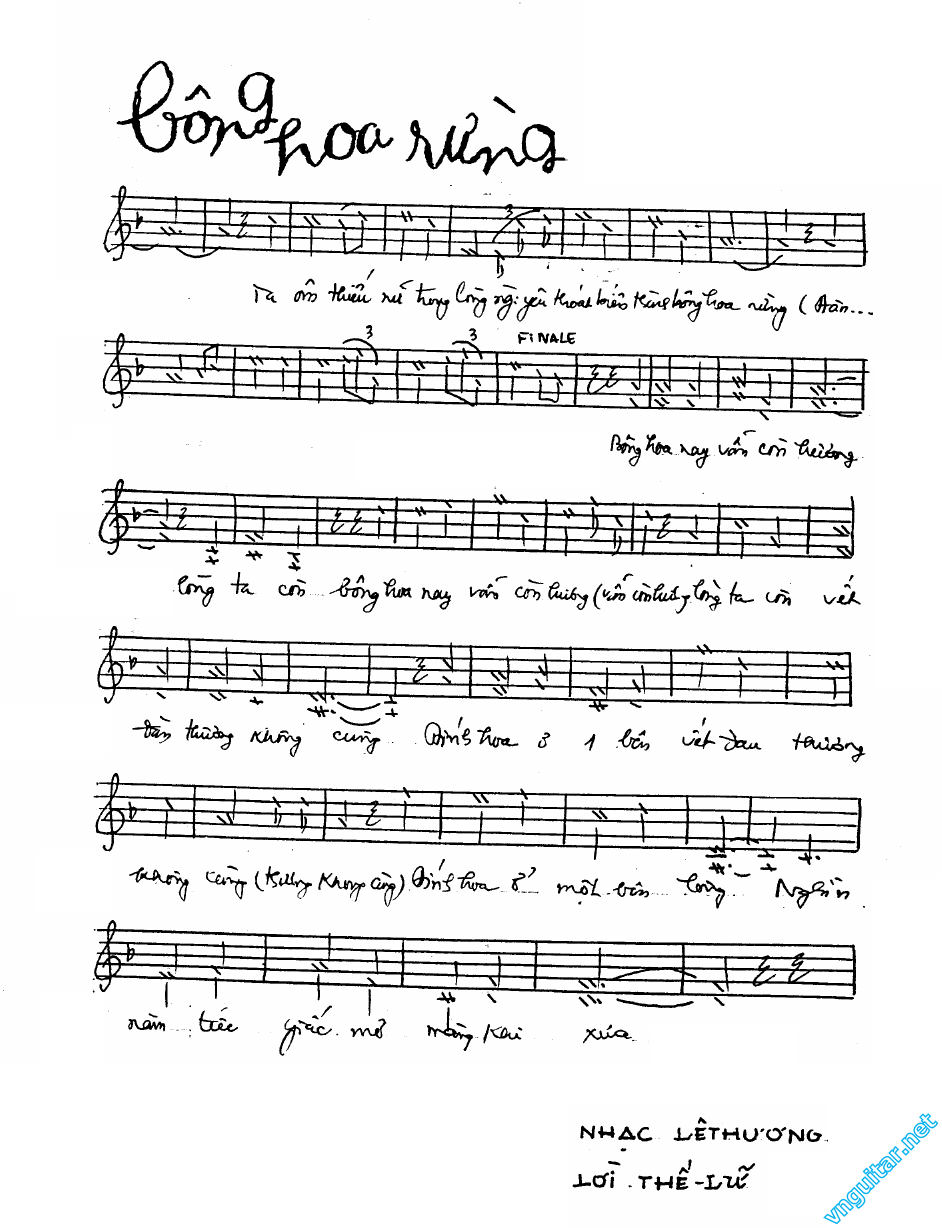 bông hoa rừng
3
Ta ôm thiếu nữ trong lòng ng: yêu thoát biến thành bông hoa rừng (Đàn...
3 3 FINALE
Bông hoa nay vẫn còn hương
lòng ta còn bông hoa nay vẫn còn hương (vẫn còn lòng ta còn vết
đàn thương không cùng Đính hoa ở 1 bên vết đau thương
không cùng (thương không cùng) Đính hoa ở một bên lòng Nghìn
năm tiếc giấc mơ màng xưa
NHẠC LÊ THƯƠNG
LỜI THẾ-LỮ
vnguitar.net